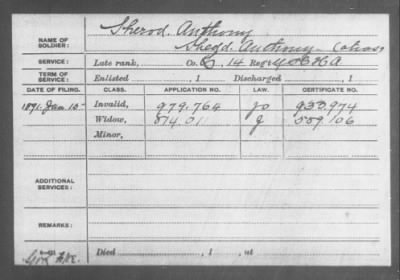 NAME OF SOLDIER: Sherod. Anthony
Shedd. Anthony (alias)
SERVICE: Late rank, Co. G, 14 Reg't U.S.C.H.A.
TERM OF SERVICE: Enlisted , 1 Discharged , 1
DATE OF FILING. CLASS. APPLICATION NO. LAW. CERTIFICATE NO.
1891. Jan. 15 Invalid, 979.764 933.974
Widow, 814.011 559.106
Minor,
ADDITIONAL SERVICES:
REMARKS:
Died , 1 , at